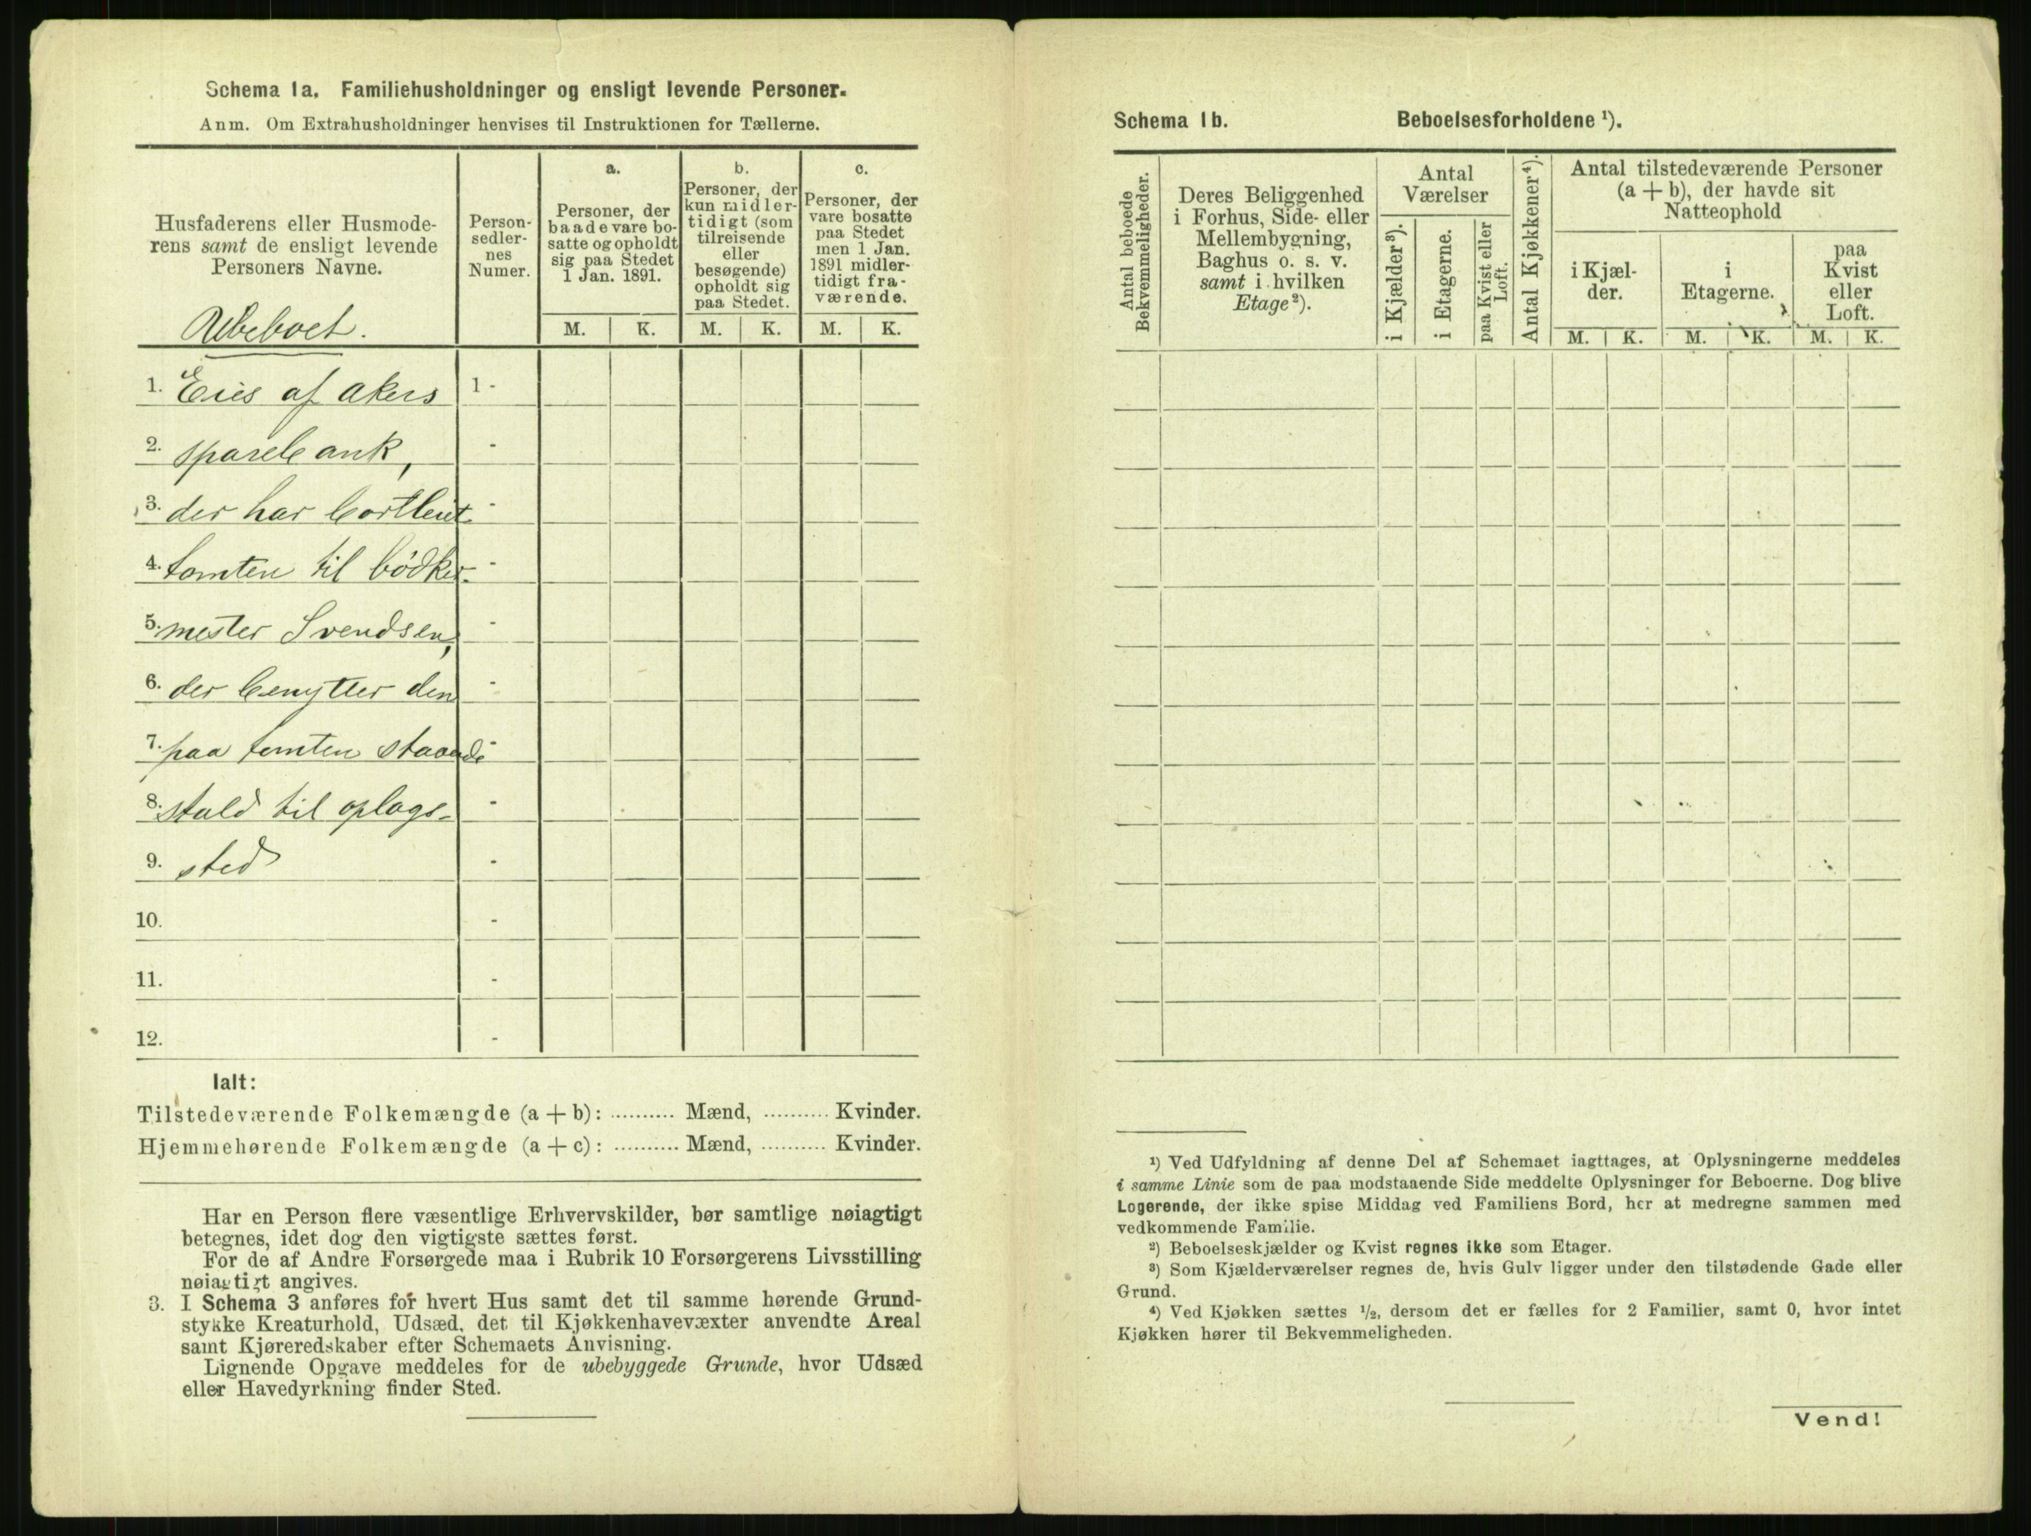 Schema 1a. Familiehusholdninger og ensligt levende Personer.
Anm. Om Extrahusholdninger henvises til Instruktionen for Tællerne.
Husfaderens eller Husmode-
rens samt de ensligt levende
Personers Navne.
Ubeboet.
Person-
sedler-
nes
Numer.
a.
Personer, der
baade vare bo-
satte og opholdt
sig paa Stedet
1 Jan. 1891.
b.
Personer, der
kun midler-
tidigt (som
tilreisende
eller
besøgende)
opholdt sig
paa Stedet.
c.
Personer, der
vare bosatte
paa Stedet
men 1 Jan.
1891 midler-
tidigt fra-
værende.
M. K. M. K. M. K.
1. Eies af Akers 1 -
2. sparebank, -
3. der har bortleiet -
4. tomten til bødker- -
5. mester Svendsen, -
6. der benytter den -
7. paa tomten staaende -
8. stald til oplags- -
9. sted -
10. -
11. -
12. -
Ialt:
Tilstedeværende Folkemængde (a + b): .......... Mænd, .......... Kvinder.
Hjemmehørende Folkemængde (a + c): .......... Mænd, .......... Kvinder.
Har en Person flere væsentlige Erhvervskilder, bør samtlige nøiagtigt
betegnes, idet dog den vigtigste sættes først.
For de af Andre Forsørgede maa i Rubrik 10 Forsørgerens Livsstilling
nøiagtigt angives.
3. I Schema 3 anføres for hvert Hus samt det til samme hørende Grund-
stykke Kreaturhold, Udsæd, det til Kjøkkenhavevæxter anvendte Areal
samt Kjøreredskaber efter Schemaets Anvisning.
Lignende Opgave meddeles for de ubebyggede Grunde, hvor Udsæd
eller Havedyrkning finder Sted.
Schema 1b. Beboelsesforholdene ¹).
Antal beboede
Bekvemmeligheder.
Deres Beliggenhed
i Forhus, Side- eller
Mellembygning,
Baghus o. s. v.
samt i hvilken
Etage²).
Antal
Værelser
i Kjælder³).
i Etagerne.
paa Kvist eller
Loft.
Antal Kjøkkener⁴).
Antal tilstedeværende Personer
(a + b), der havde sit
Natteophold
i Kjæl-
der.
i
Etagerne.
paa
Kvist
eller
Loft.
M. K. M. K. M. K.
¹) Ved Udfyldning af denne Del af Schemaet iagttages, at Oplysningerne meddeles
i samme Linie som de paa modstaaende Side meddelte Oplysninger for Beboerne. Dog blive
Logerende, der ikke spise Middag ved Familiens Bord, her at medregne sammen med
vedkommende Familie.
²) Beboelseskjælder og Kvist regnes ikke som Etager.
³) Som Kjælderværelser regnes de, hvis Gulv ligger under den tilstødende Gade eller
Grund.
⁴) Ved Kjøkken sættes ½, dersom det er fælles for 2 Familier, samt 0, hvor intet
Kjøkken hører til Bekvemmeligheden.
Vend!